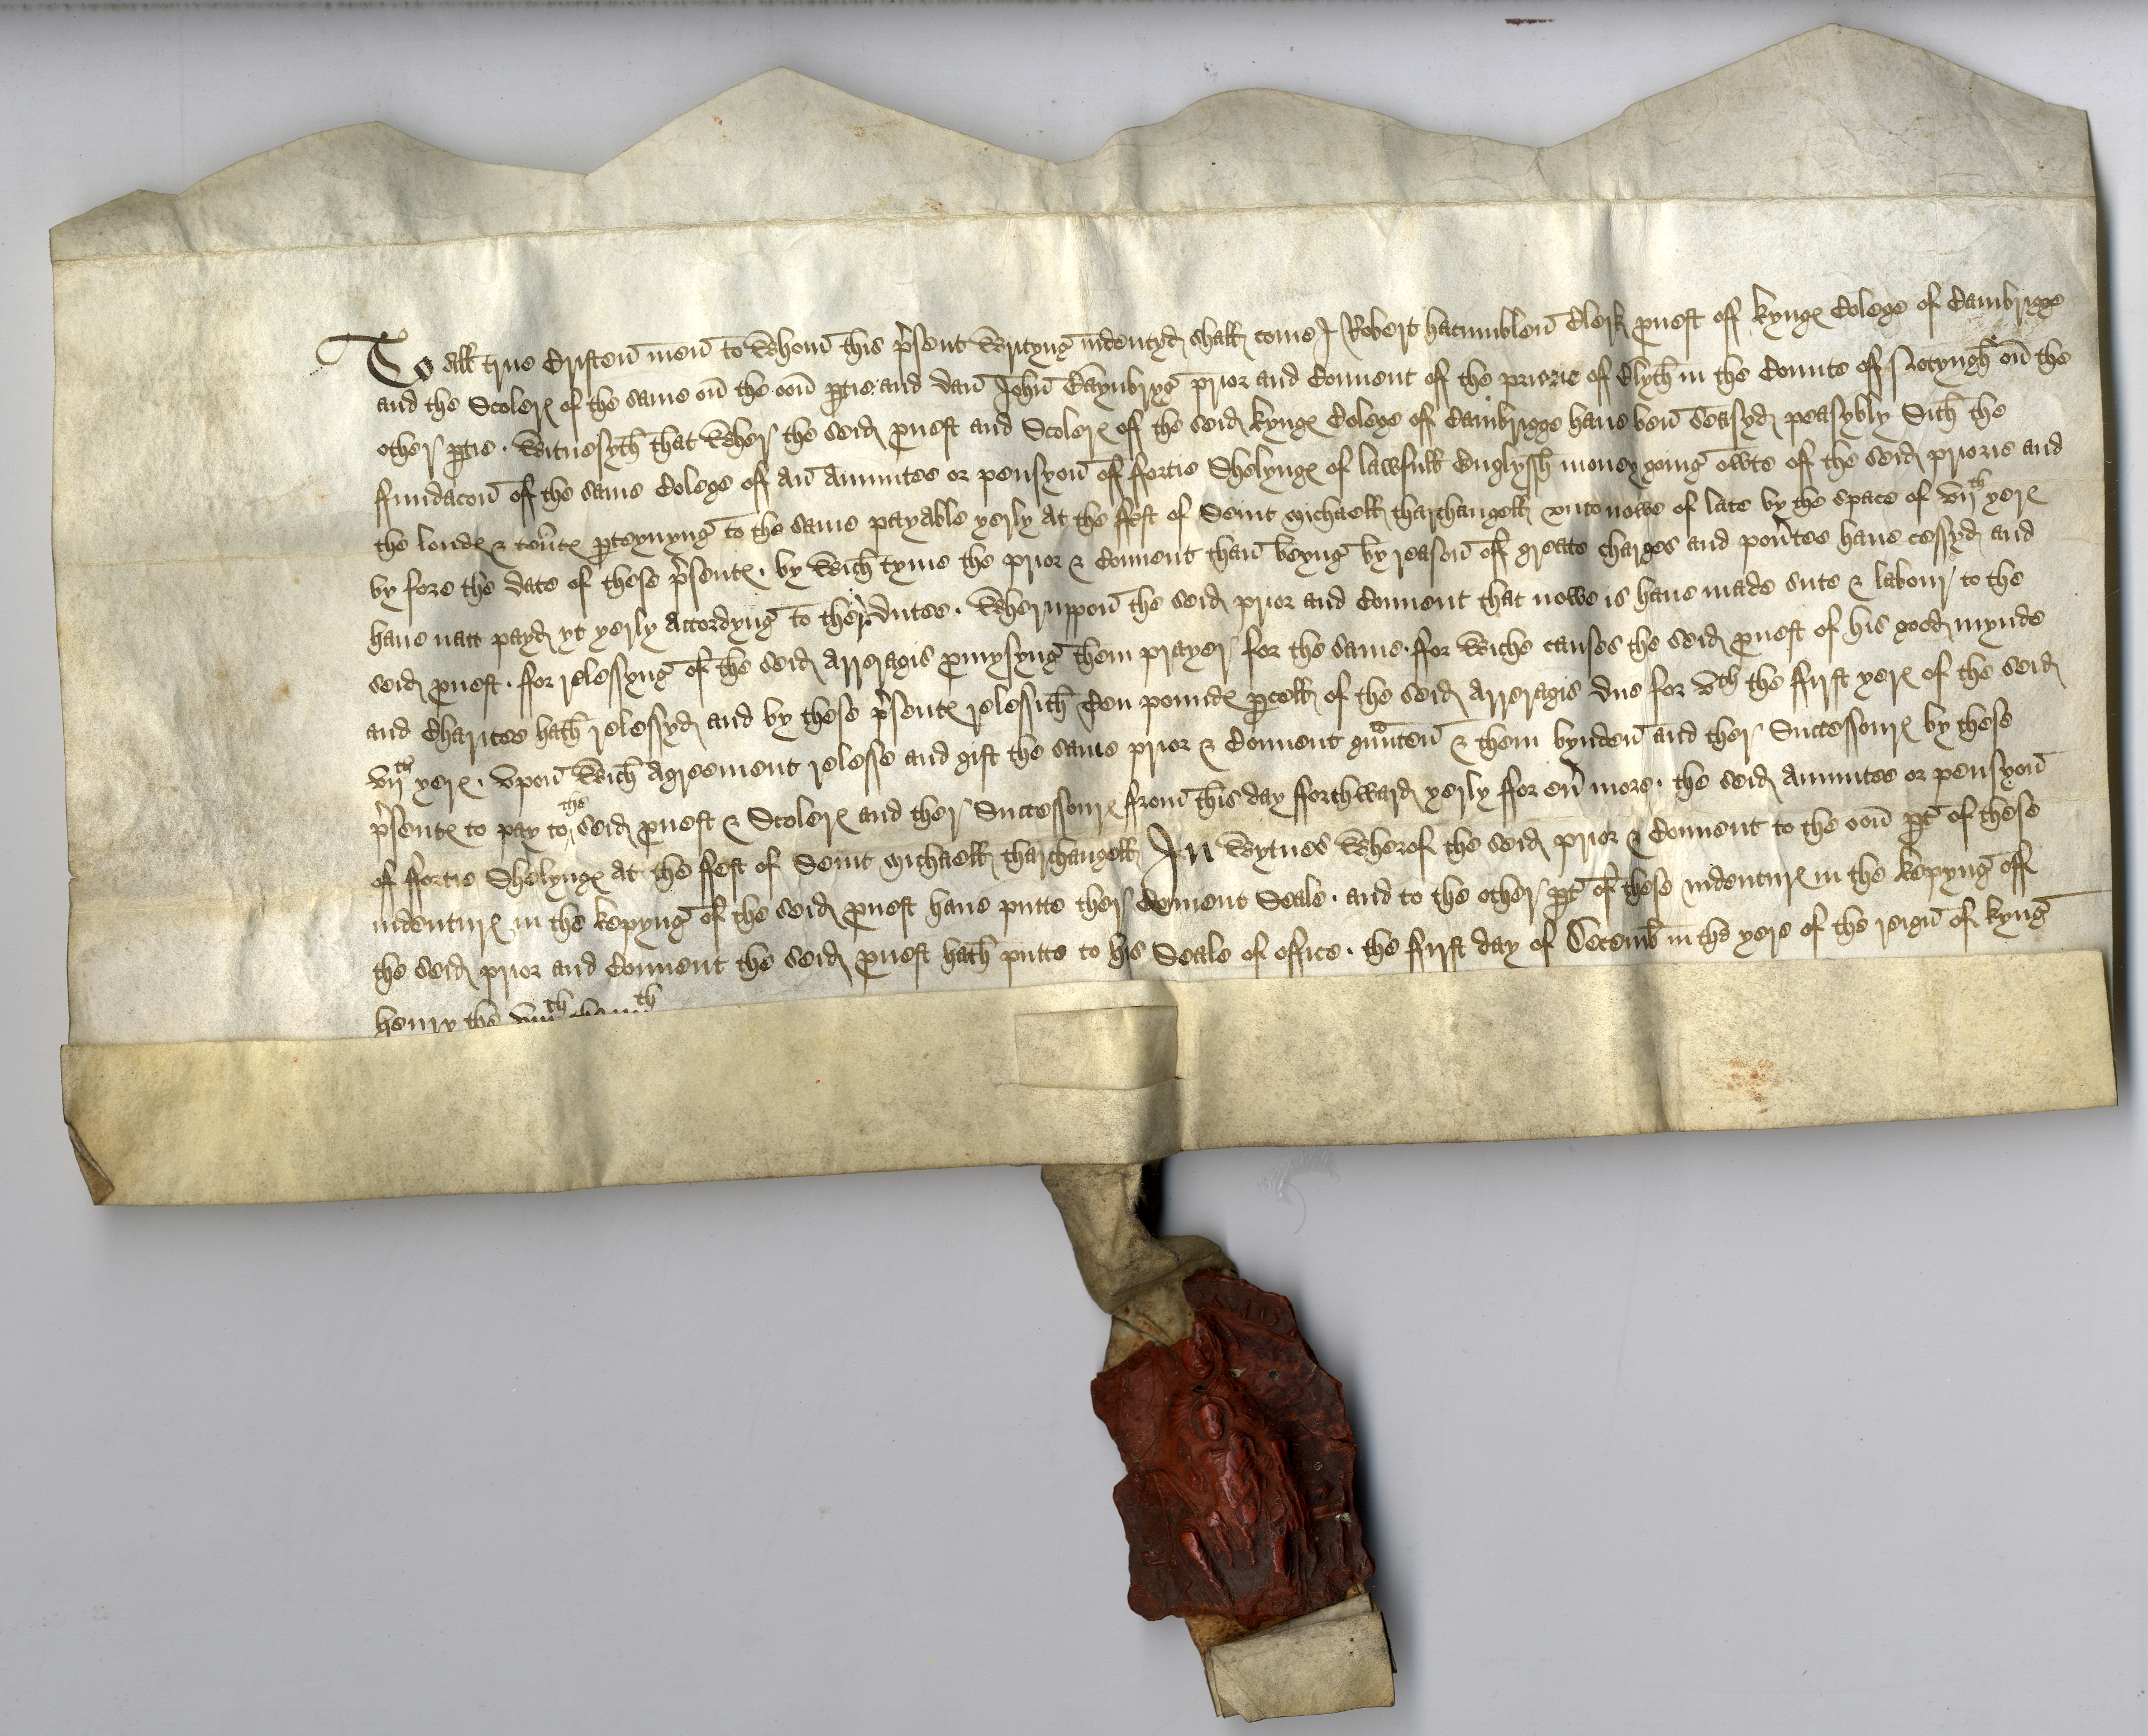 To all true Cristen men to Whom this p'sent Writyng indentyd shall come I Robert hacumblen Clerk pvost off kyngs Colege of Cambrigge
and the Scolers of the same on the oon ptie and dan John Baynbryg prior and Couent of the priorie of Blyth in the Counte off Notyngh on the
other ptie . Witnesyth that Wher the seid pvost and Scolers off the seid kyngs Colege off Cambrigge haue ben Seasyd peasybly Sith the
ffundacon off the same Colege off An Annuitee or pensyon off ffortie Shelyngs of lawfull Englyssh money going owte off the seid priorie and
the londs & ten'ts pteynyng to the same payable yerly at the ffest of Seint Michaell tharchangell vnto nowe of late by the space of vijth yers
by fore the date of these p'sents . by Wich tyme the prior & Couent than beyng by reason off greate charges and pou'tee haue cessyd and
haue natt payd yt yerly Accordyng to ther dutee . Wheruppon the seid prior and Couent that nowe is haue made sute & labour to the
seid pvost . ffor relessyng of the seid Arreragis pmysyng them prayer for the same . ffor Wiche causes the seid pvost of his good mynde
and Charitee hath relessyd and by these p'sents relessith Ten pounds pcell of the seid Arreragis due for vth the ffirst yers of the seid
vijth yers . Vpon Wich Agreement relesse and gift the same prior & Couent gunten & them bynden and ther Successours by these
p'sents to pay to the seid pvost & Scolers and ther Successours from this day fforthward yerly ffor eu' more . the seid Annuitee or pensyon
of ffortie Shelyngs At the ffest of Seint Michaell tharchangell In Wytnes Wherof the seid prior & Couent to the oon pt of these
indenturs in the kepyng of the seid pvost haue putte ther Couent Seale . and to the other pt of these indenturs in the kepyng off
the seid prior and Couent the seid pvost hath putte to his Seale of office . the ffirst day of Decemb' in the yere of the reign of kyng
henry the viijth the